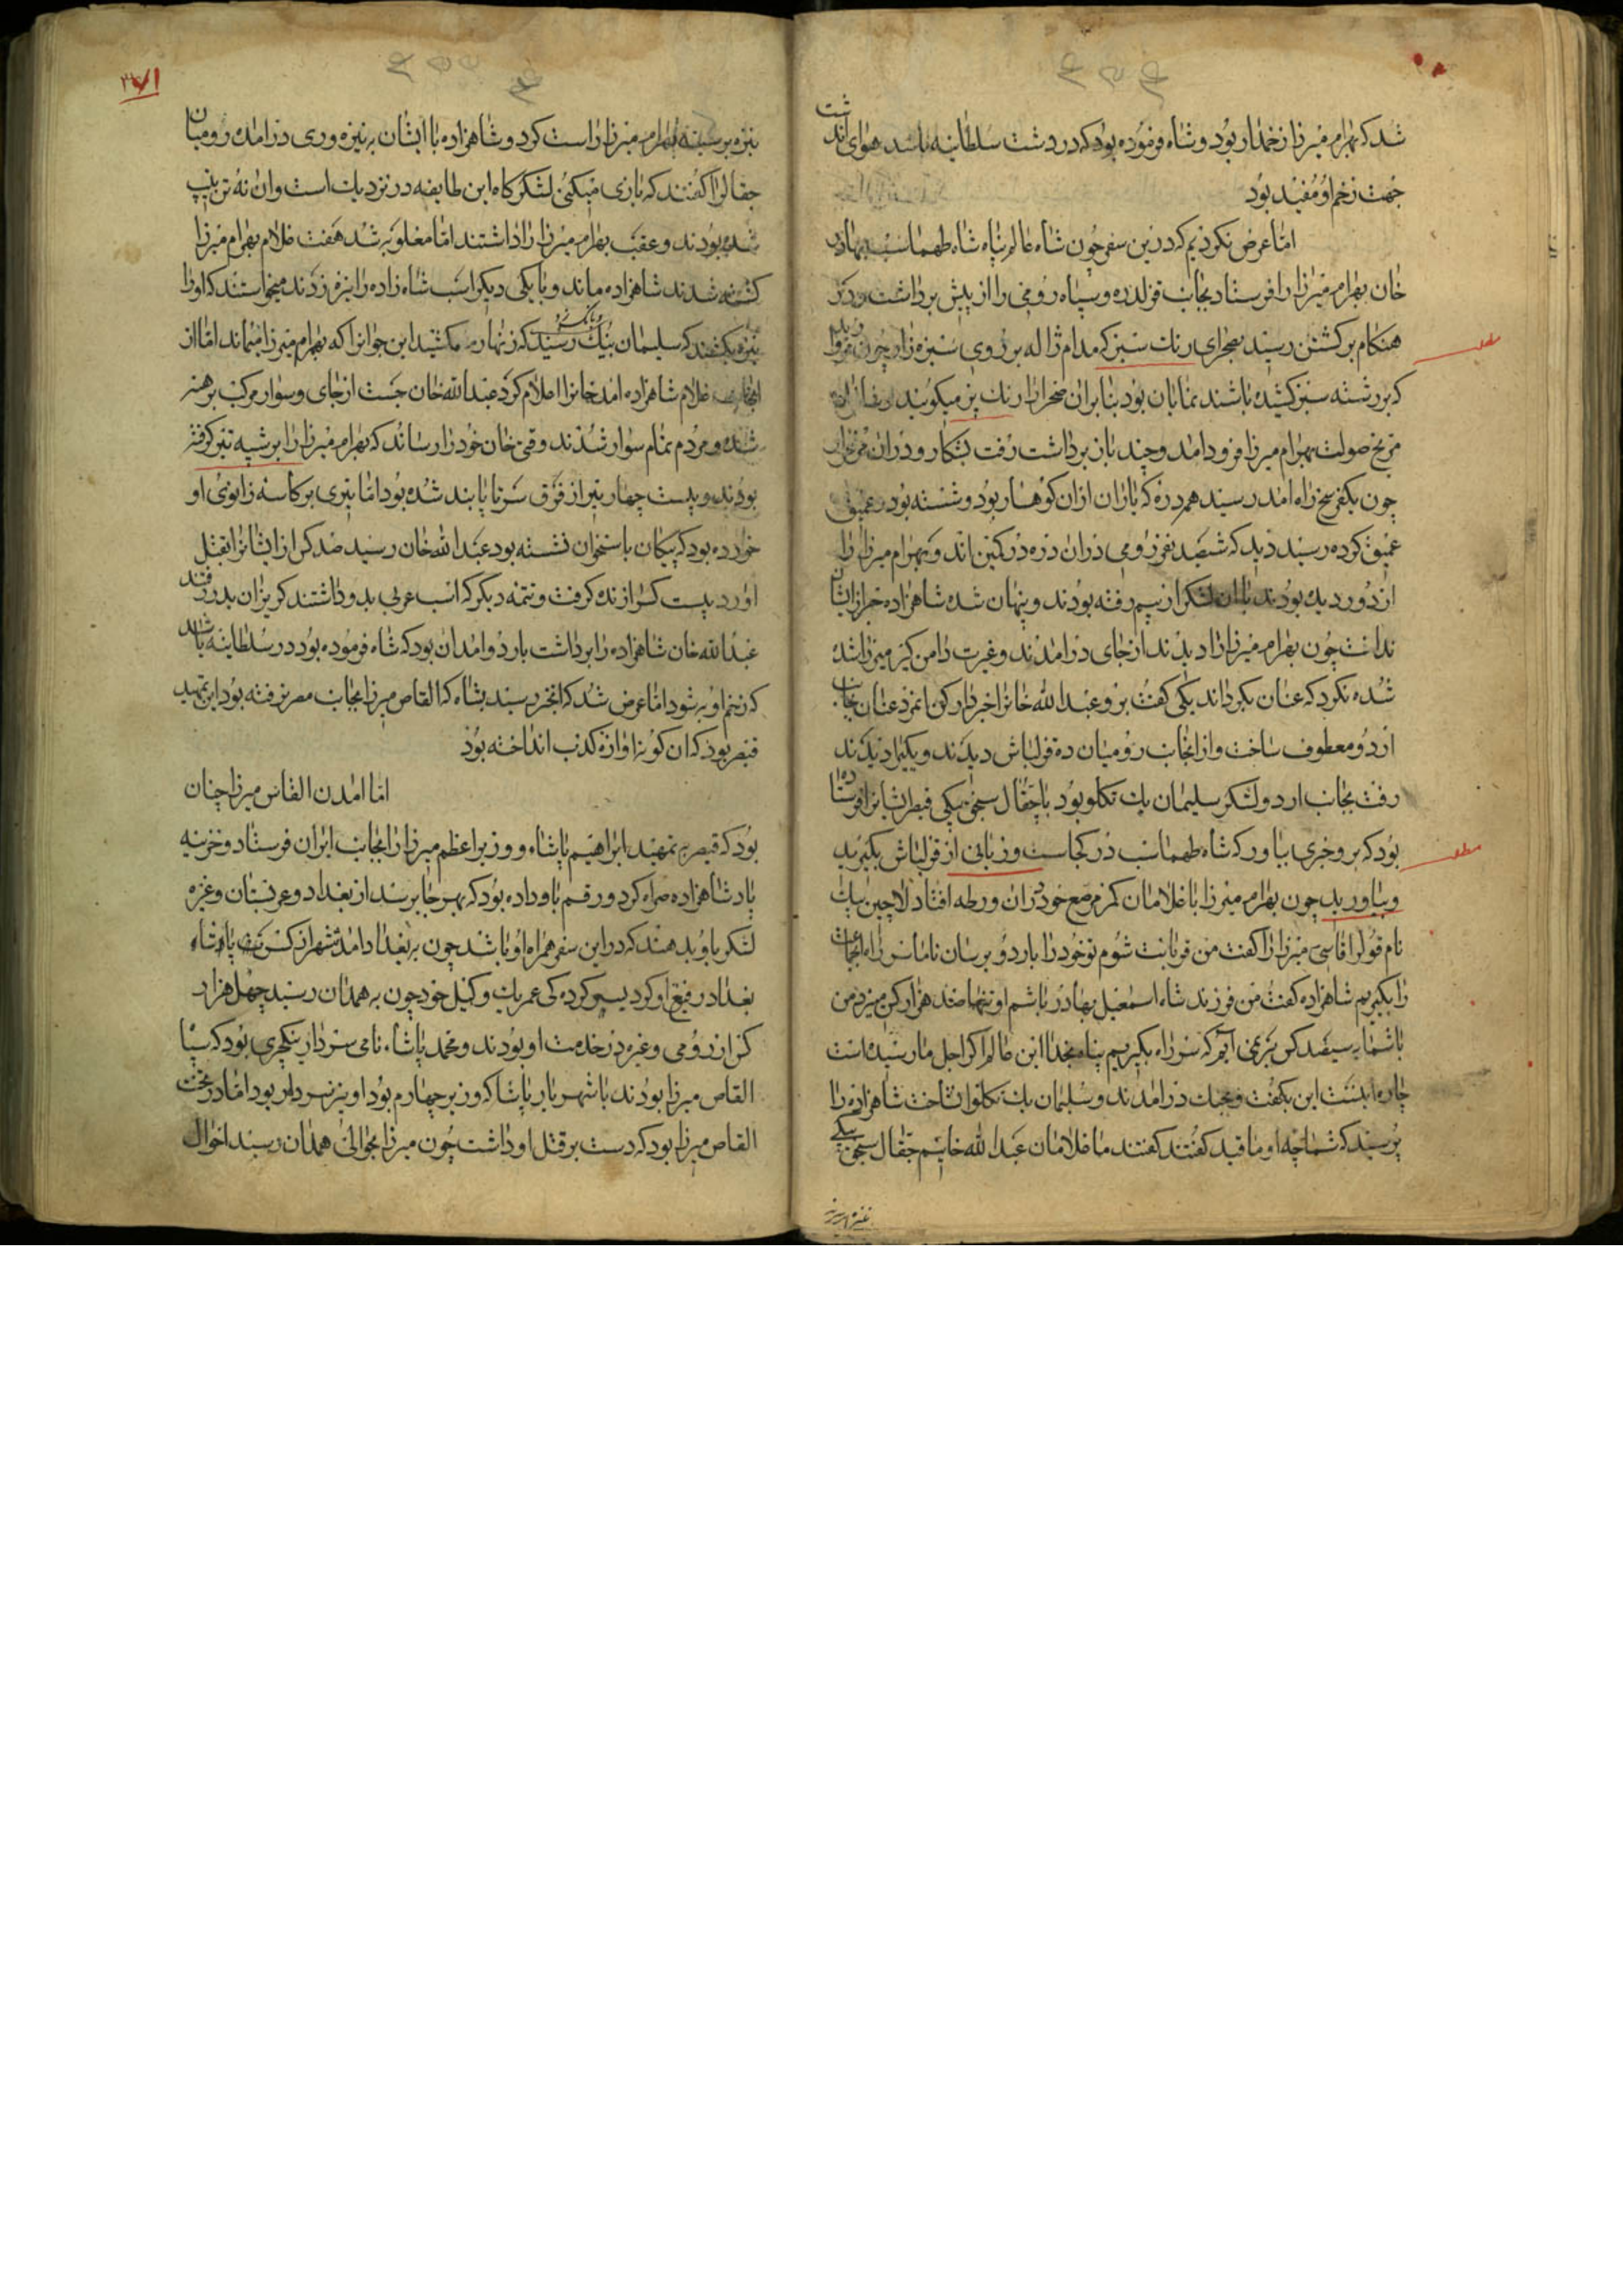 شد که بهرام میرزا زخمدار بود و شاه فرموده بود که در دشت سلطانیه باشد هوای اندشت
جهت زخم او مفید بود
اما عرض نکردیم که درین سفر چون شاه عالم پناه شاه طهماسب بهادر
خان بهرام میرزا را فرستاد بجانب قزلدره و سپاه رومی را از پیش برداشت در
هنکام برکشتن رسید بصحرای رنک سبز که مدام ژاله بر روی سبزه زار چون مروارید
که بر رشته سبز کشیده باشند نمایان بود بنابران صحرا را رنک بز میکویند
مریخ صولت بهرام میرزا فرود امد و چند باز برداشت رفت بشکار و دران
چون یکفرسخ راه امد رسید بدره که باران ازان کوهسار بود و شسته بود عمیق
عمیق کرده رسید دید که ششصد نفر رومی دران دره در کمین اند و بهرام میرزا را
از دور دیده بودند با ان لشکر از بیم رفته بودند و پنهان شده شاهزاده خبر از ایشان
ندانست چون بهرام میرزا را دیدند از جای درامدند و غیرت دامن کیر میرزا شد
شده نکرد که عنان بکرداند یکی کفت برو عبدالله خانرا خبردار کن انمرد عنان بجانب
اردو معطوف ساخت و از انجانب رومیان ده قزلباش دیدند و یکیرا دیدند
رفت بجانب اردو لشکر سلیمان بیک تکلو بود با جقال سنجق بیکی قیصر ایشانرا فرستاده
بود که برو خبری بیاور که شاه طهماسب در کجاست و زبانی از قزلباش بکیرید
و بیاورید چون بهرام میرزا با غلامان کمر مرصع خود دران ورطه افتاد لاچین بیک
نام قوللر اقاسی میرزا را کفت من قربانت شوم تو خود را باردو برسان تا ما سر راه انجماعت
را بکیریم شاهزاده کفت من فرزند شاه اسمعیل بهادر باشم او تنها بصد هزار کس میزد من
با شما به سیصد کس بزنمی ایم که سر راه بکیریم پناه بخدا ابن عالم اکر اجل ما رسیده است
چاره نیست این بکفت و بجنک درامدند و سلیمان بیک تکلو شناخت شاهزاده را
پرسید که شما چه اوماقید کفتند ما غلامان عبدالله خانیم جقال سنجق بیکی
نیزه بر سینه
نیزه بر سینه بهرام میرزا راست کرد و شاهزاده با ایشان به نیزه وری درامد رومیان
جقال را کفتند که بازی میکنی لشکرکاه این طایفه در نزدیک است و ان نه تن
شده بودند و عقب بهرام میرزا را داشتند اما مغلوبه شد هفت غلام بهرام میرزا
کشته شدند شاهزاده ماند و با یکی دیکر اسب شاه زاده را نیزه زدند میخواستند که او را
نیزه بکشند که سلیمان بیک رسید که زنهار مکشید این جوانرا که بهرام میرزا میماند اما از
انجانب غلام شاهزاده امد خانرا اعلام کرد عبدالله خان جست از جای و سوار مرکب برهنه
شده و مردم تمام سوار شدند وقتی خان خود را رساند که بهرام میرزا را بر شیبه تیر کرفته
بودند و بیست چهار تیر از فرق سر تا پا بند شده بود اما تیری بر کاسه زانوی او
خورده بود که پیکان باستخوان نشسته بود عبدالله خان رسید صد کس از ایشانرا بقتل
اورد بیست کس را زنده کرفت و تتمه دیکر که اسب عربی بدو داشتند کریزان بدر رفتند
عبدالله خان شاهزاده را برداشت باردو امد ان بود که شاه فرموده بود در سلطانیه باشد
که زخم او به شود اما عرض شد که انخبر رسید بشاه که القاص میرزا بجانب مصر رفته بود این تمهید
قیصر بود که ان کونه اوازه کذب انداخته بود
اما امدن القاس میرزا چنان
بود که قیصر به تمهید ابراهیم پاشاه و وزیر اعظم میرزا را بجانب ایران فرستاد و خزینه
با شاهزاده همراه کرد و رقم باو داده بود که بهر جا برسند از بغداد و عربستان و غیره
لشکر باو بدهند که در این سفر همراه او باشند چون به بغداد امد
بغداد رفیع او کرد بسر کرده کی عمر بیک وکیل خود چون به همدان رسید چهل هزار
کس از رومی و غیره در خدمت او بودند و محمد پاشاه نامی سردار ینکچری بود که
القاص میرزا بودند با شهریار پاشا که وزیر چهارم بود او نیز سردار بود اما در تحت
القاص میرزا بود که دست بر قتل او داشت چون میرزا بحوالئ همدان رسید احوال